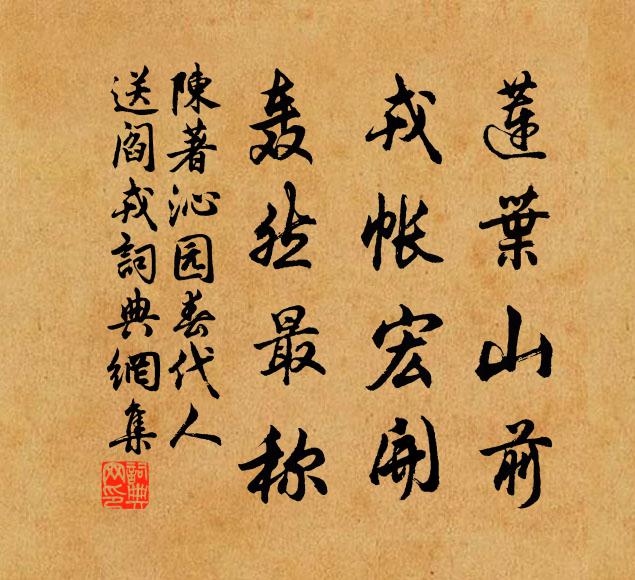 蓮葉山前
戎帐宏開
轰然最称
陳著沁园春代人
送阎戎詞典網集
詞典网印